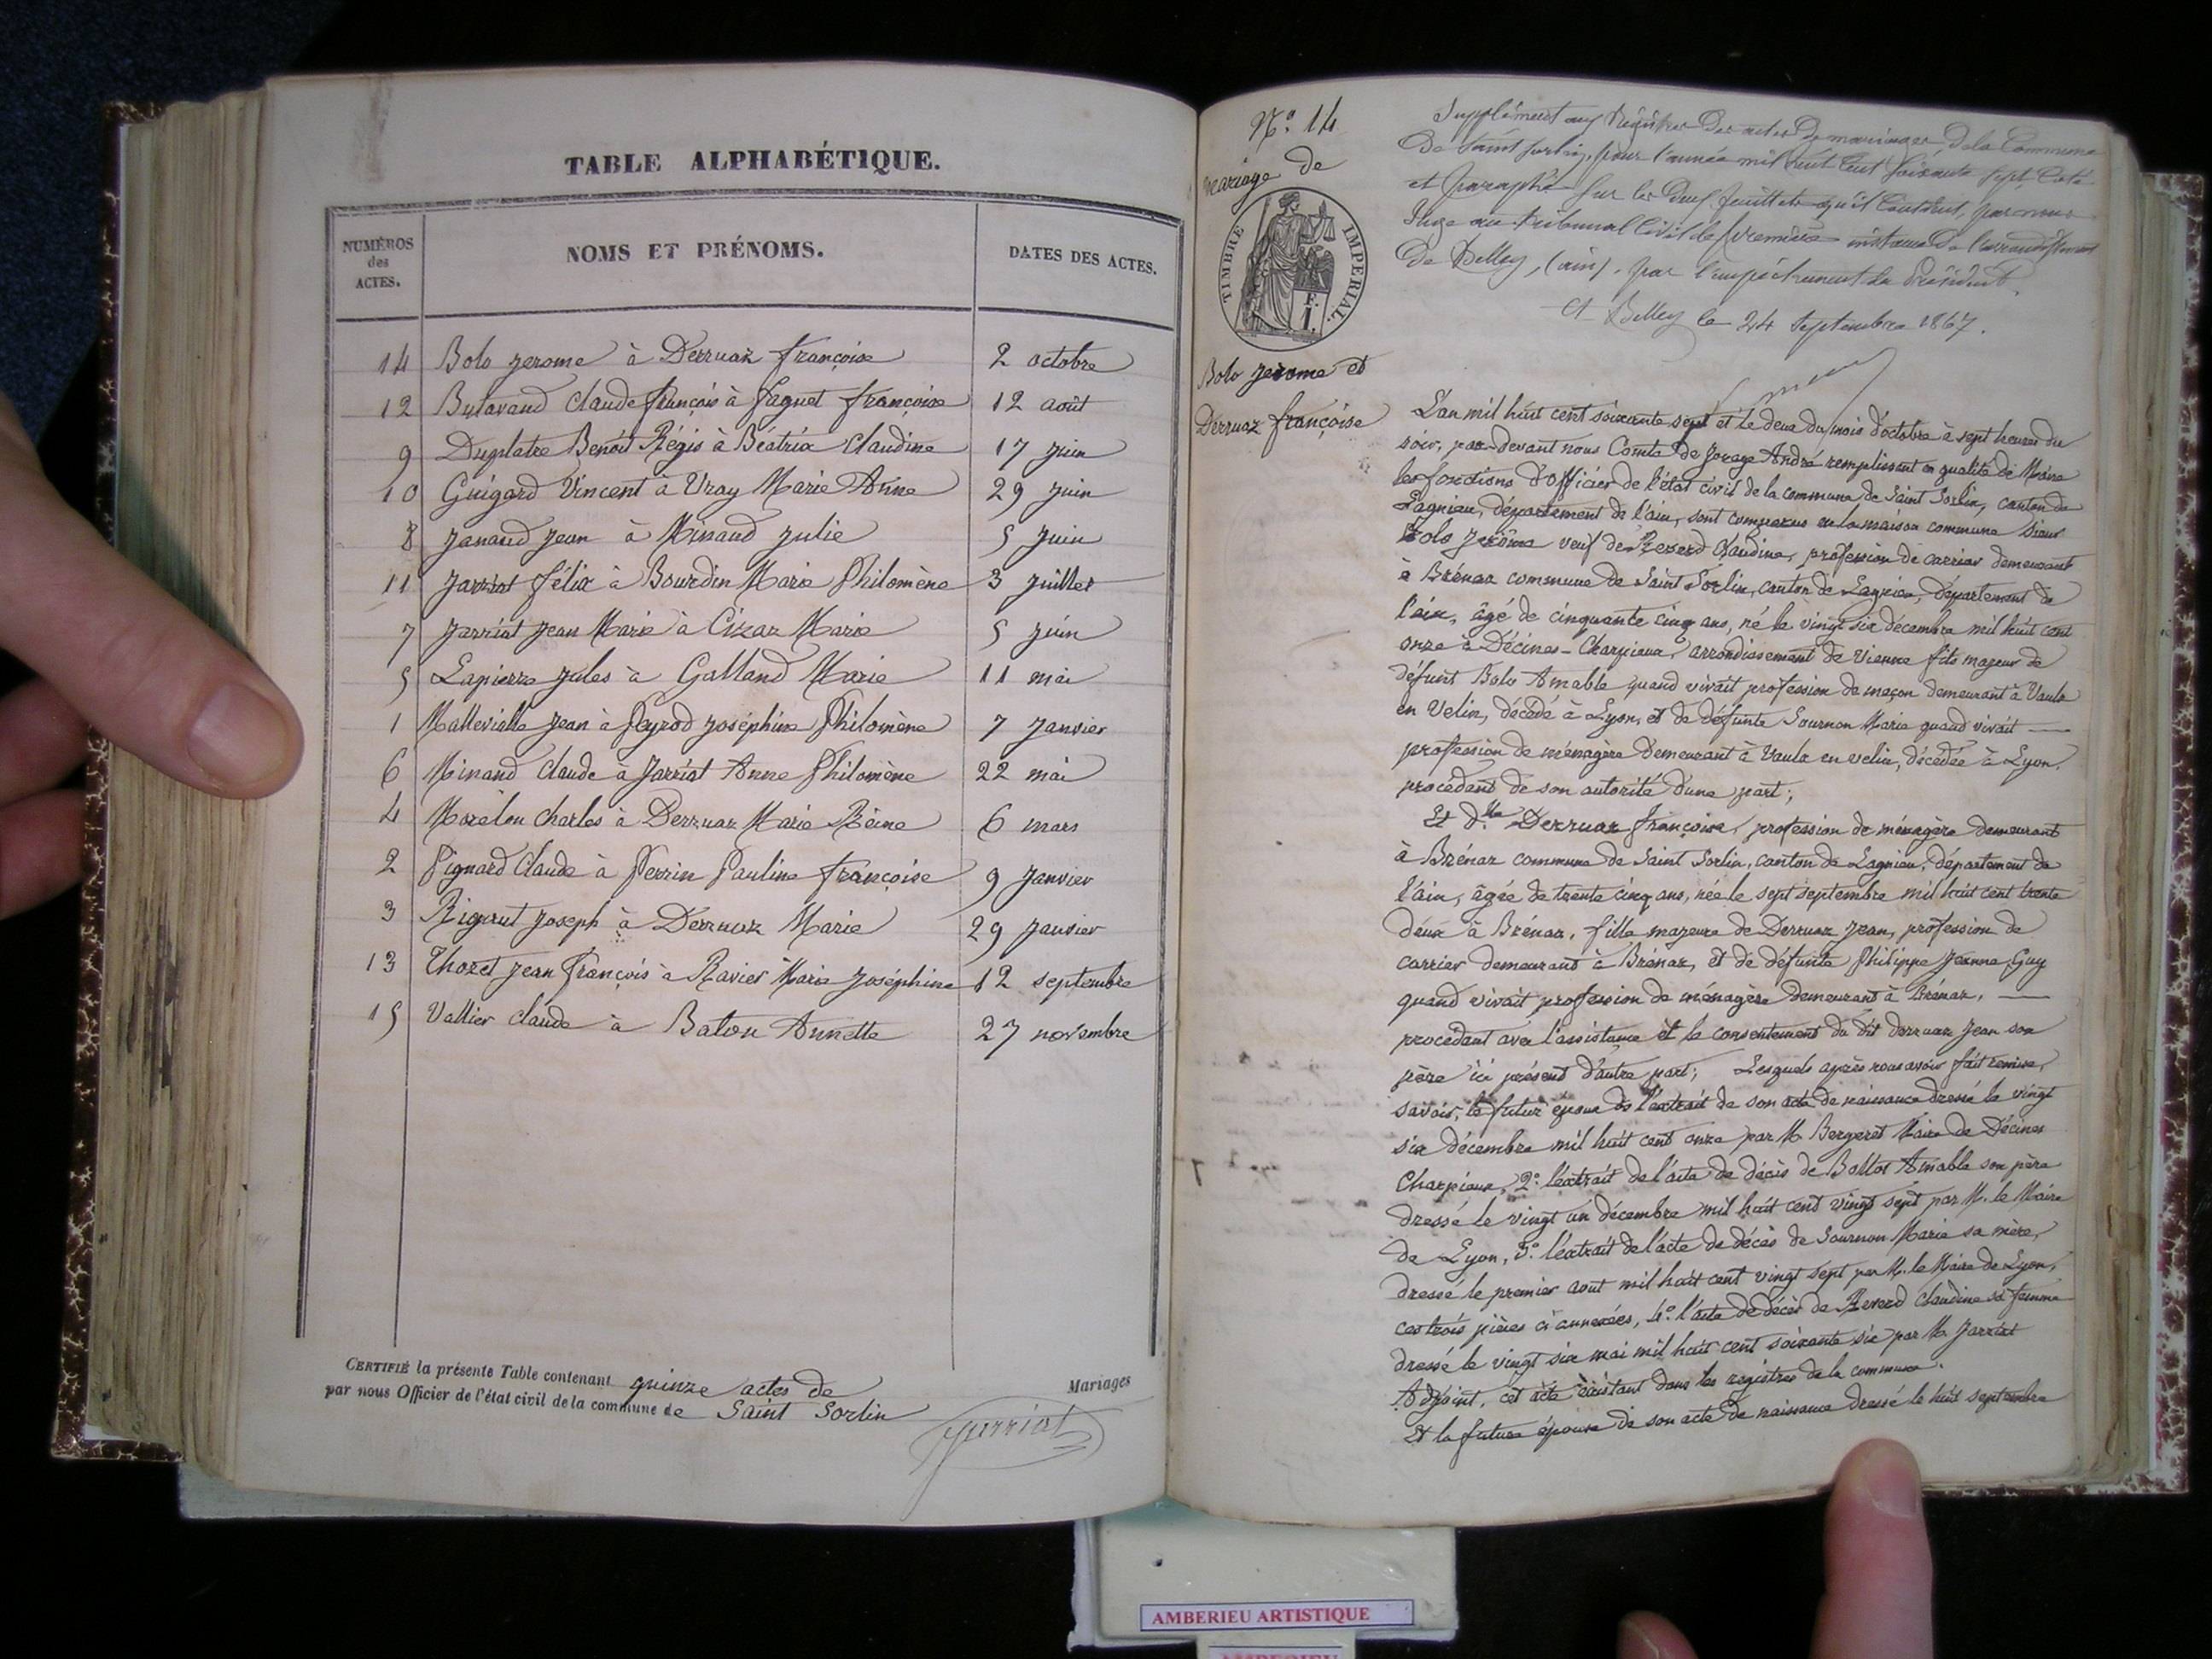 TABLE ALPHABÉTIQUE.
NUMÉROS des ACTES.
NOMS ET PRÉNOMS.
DATES DES ACTES.
14 Bolo jerome à Derruaz françoise 2 octobre
12 Claude françois à françoise 12 août
9 Duplatre Benoit Régis à Béatrix Claudine 17 juin
10 Guigard Vincent à Vray Marie Anne 29 juin
8 Janand Jean à Minand Julie 5 juin
11 Jarriat félix à Bourdin Marie Philomène 3 juillet
7 Jarriat Jean Marie à Cizar Marie 5 juin
5 Lapierre Jules à Galland Marie 11 mai
1 Mallevialle Jean à Peyrod Joséphine Philomène 7 Janvier
6 Minand Claude à Jarriat Anne Philomène 22 mai
4 Morelon Charles à Derruaz Marie Reine 6 mars
2 Pignard Claude à Perrin Pauline françoise 9 Janvier
3 Joseph à Derruaz Marie 29 Janvier
13 Thozet Jean François à Ravier Marie Joséphine 12 septembre
15 Vallier Claude à Baton Annette 27 novembre
CERTIFIÉ la présente Table contenant quinze actes de Mariages
par nous Officier de l'état civil de la commune de Saint Sorlin
Jarriat
N.º 14
mariage de
TIMBRE IMPERIAL.
F. I.
Bolo jerome et
Derruaz françoise
Supplément aux Registres des actes de mariages de la Commune
de Saint Sorlin, pour l'année mil huit cent soixante sept, Coté
et paraphé sur les deux feuillets qu'il contient, par nous
Juge au tribunal Civil de première instance de l'arrondissement
de Belley, (ain), par l'empêchement du Président.
A Belley le 24 Septembre 1867.
L'an mil huit cent soixante sept et le deux du mois d'octobre à sept heures du
soir, par devant nous Comte de Jorage André remplissant en qualité de Maire
les fonctions d'officier de l'état civil de la commune de Saint Sorlin, canton de
Lagnieu, département de l'ain, sont comparus en la maison commune Sieur
Bolo Jerôme veuf de Reverd Claudine, profession de carrier demeurant
à Brénaz commune de Saint Sorlin, canton de Lagnieu, département de
l'ain, âgé de cinquante cinq ans, né le vingt six décembre mil huit cent
onze à Décines-Charpieux, arrondissement de Vienne fils majeur de
défunt Bolo Amable quand vivait profession de maçon demeurant à Vaulx
en Velin, décédé à Lyon, et de défunte Sournon Marie quand vivait
profession de ménagère demeurant à Vaulx en velin, décédée à Lyon,
procédant de son autorité d'une part;
Et d.lle Derruaz françoise, profession de ménagère demeurant
à Brénaz commune de Saint Sorlin, canton de Lagnieu, département de
l'ain, âgée de trente cinq ans, née le sept septembre mil huit cent trente
deux à Brénaz, fille majeure de Derruaz Jean, profession de
carrier demeurant à Brénaz, et de défunte Philippe Jeanne, Guy
quand vivait profession de ménagère demeurant à Brénaz,
procédant avec l'assistance et le consentement du dit derruaz Jean son
père ici présent d'autre part; Lesquels après nous avoir fait remise,
savoir, le futur époux de l'extrait de son acte de naissance dressé le vingt
six décembre mil huit cent onze par M. Bergeret Maire de Décines
Charpieux, 2.º l'extrait de l'acte de décès de Bollot Amable son père
dressé le vingt un décembre mil huit cent vingt sept par M. le Maire
de Lyon, 3.º l'extrait de l'acte de décès de Sournon Marie sa mère,
dressé le premier aout mil huit cent vingt sept par M. le Maire de Lyon,
ces trois pièces ci annexées, 4.º l'acte de décès de Reverd Claudine sa femme
dressé le vingt six mai mil huit cent soixante six par M. Jarriat
Adjoint, cet acte existant dans les registres de la commune.
Et la future épouse de son acte de naissance dressé le huit septembre
AMBERIEU ARTISTIQUE